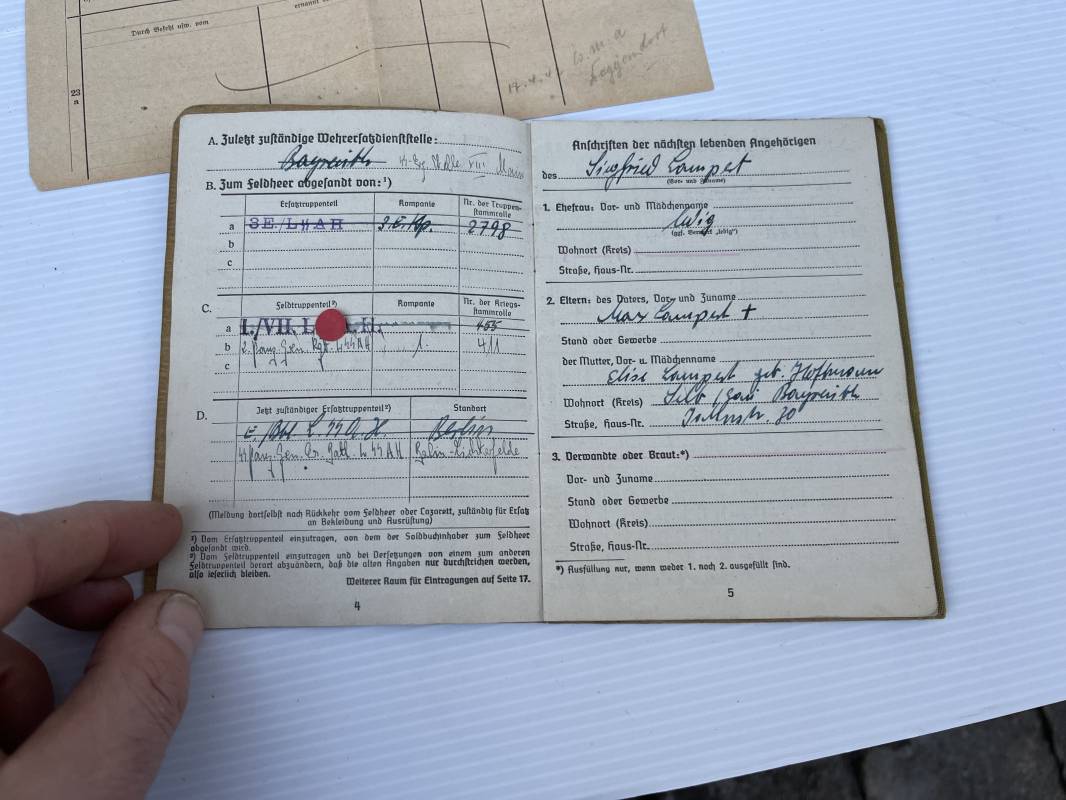 Durch Befehl usw. vom
ernannt
23
a
17.4.4
A. Zuletzt zuständige Wehrersatzdienststelle:
Bayreuth
B. Zum Feldheer abgesandt von:¹)
Ersatztruppenteil Kompanie Nr. der Truppen-
stammrolle
a 3.E./L ᛋᛋ A H 3.E.Kp. 2798
b
c
C. Feldtruppenteil²) Kompanie Nr. der Kriegs-
stammrolle
a I./VII. L 455
b 2. Panz. Gren. Rgt. L ᛋᛋ AH 1. 411
c
D. Jetzt zuständiger Ersatztruppenteil²) Standort
E./Btl. L. ᛋᛋ A. H. Berlin
ᛋᛋ Panz. Gren. Er. Batl. L ᛋᛋ AH Berlin-Lichterfelde
(Meldung dortselbst nach Rückkehr vom Feldheer oder Lazarett, zuständig für Ersatz
an Bekleidung und Ausrüstung)
¹) Vom Ersatztruppenteil einzutragen, von dem der Soldbuchinhaber zum Feldheer
abgesandt wird.
²) Vom Feldtruppenteil einzutragen und bei Versetzungen von einem zum anderen
Feldtruppenteil derart abzuändern, daß die alten Angaben nur durchstrichen werden,
also leserlich bleiben.
Weiterer Raum für Eintragungen auf Seite 17.
4
Anschriften der nächsten lebenden Angehörigen
des Siegfried Lampert
(Vor- und Zuname)
1. Ehefrau: Vor- und Mädchenname
ledig
(ggf. Vermerk „ledig")
Wohnort (Kreis)
Straße, Haus-Nr.
2. Eltern: des Vaters, Vor- und Zuname
Max Lampert +
Stand oder Gewerbe
der Mutter, Vor- u. Mädchenname
Elise Lampert geb. Hofmann
Wohnort (Kreis) Selb / Gau Bayreuth
Straße, Haus-Nr. 20
3. Verwandte oder Braut:*)
Vor- und Zuname
Stand oder Gewerbe
Wohnort (Kreis)
Straße, Haus-Nr.
*) Ausfüllung nur, wenn weder 1. noch 2. ausgefüllt sind.
5